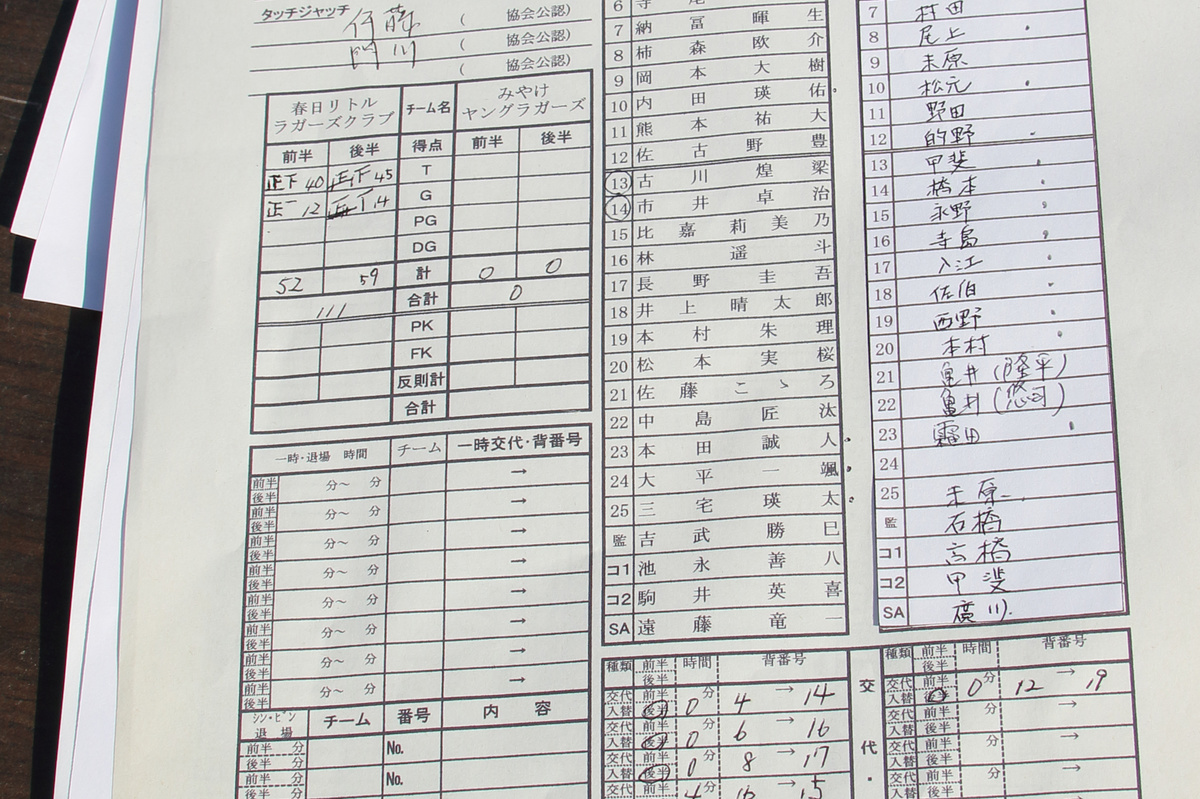 タッチジャッチ 伊藤 ( 協会公認)
門川 ( 協会公認)
( 協会公認)
春日リトル
ラガーズクラブ
チーム名
みやけ
ヤングラガーズ
前半 後半 得点 前半 後半
正下 40 正下 45 T
正一 12 正丁 14 G
PG
DG
52 59 計 0 0
111 合計 0
PK
FK
反則計
合計
一時・退場 時間 チーム 一時交代・背番号
前半 分～ 分 →
後半
前半 分～ 分 →
後半
前半 分～ 分 →
後半
前半 分～ 分 →
後半
前半 分～ 分 →
後半
前半 分～ 分 →
後半
前半 分～ 分 →
後半
前半 分～ 分 →
後半
シン・ビン
退場
チーム 番号 内容
前半 分 No.
後半 分
前半 分 No.
後半 分
6
7 納富暉生
8 柿森欧介
9 岡本大樹
10 内田瑛佑
11 熊本祐大
12 佐古野豊
13 古川煌梁
14 市井卓治
15 比嘉莉美乃
16 林遥斗
17 長野圭吾
18 井上晴太郎
19 本村朱理
20 松本実桜
21 佐藤こゝろ
22 中島匠汰
23 本田誠人
24 大平一颯
25 三宅瑛太
監 吉武勝巳
コ1 池永善八
コ2 駒井英喜
SA 遠藤竜一
7 村田
8 尾上
9 末原
10 松元
11 野田
12 的野
13 甲斐
14 橋本
15 永野
16 寺島
17 入江
18 佐伯
19 西野
20 本村
21 亀井(隆平)
22 亀井(悠司)
23
24
25 末原
監 石橋
コ1 高橋
コ2 甲斐
SA 廣川
種類 前半 後半 時間 背番号
交代 入替 前半 後半 0分 4 → 14
交代 入替 前半 後半 0 6 → 16
交代 入替 前半 後半 0 8 → 17
交代 入替 前半 4分 → 15
交代・
種類 前半 後半 時間 背番号
交代 入替 前半 後半 0分 12 → 19
交代 入替 前半 後半 分 →
交代 入替 前半 後半 分 →
交代 入替 前半 後半 分 →